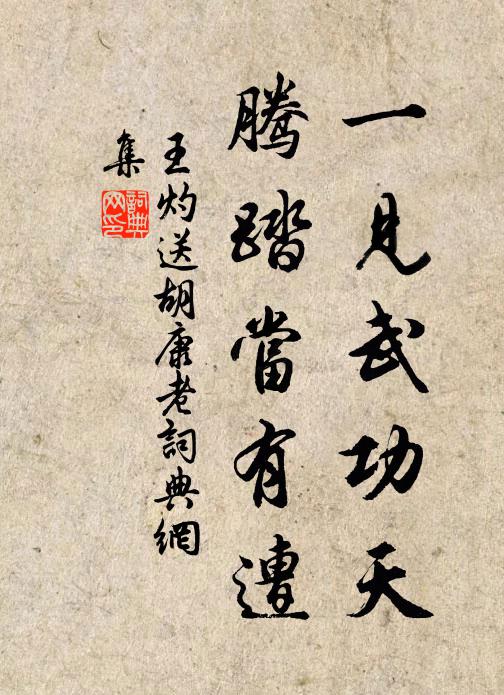 一見武功天
騰踏當有遭
王灼送胡康老詞典網
集
詞典
网印